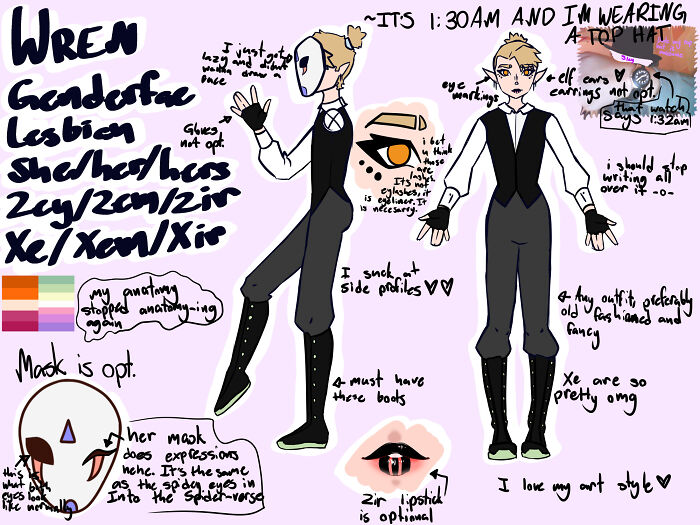 WREN
Genderfae
Lesbian
She/her/hers
Zey/Zem/Zir
Xe/Xem/Xir
~IT'S 1:30AM AND I'M WEARING
A TOP HAT
I just got
lazy and didnt
wanna draw a
face
Gloves
not opt.
eye
markings
i bet
u think
those
are
lashes.
It's not
eyelashes, it
is eyeliner. It
is necessary.
elf ears ♡
earrings not opt.
that watch
says 1:32am
i should stop
writing all
over it -o-
I suck at
side profiles ♡♡
my anatomy
stopped anatomy-ing
again
Any outfit, preferably
old fashioned and
fancy
Mask is opt.
must have
these boots
Xe are so
pretty omg
her mask
does expressions
hehe. It's the same
as the spidey eyes in
Into the Spider-verse
this is
what both
eyes look
like normally
Zir lipstick
is optional
I love my art style ♡